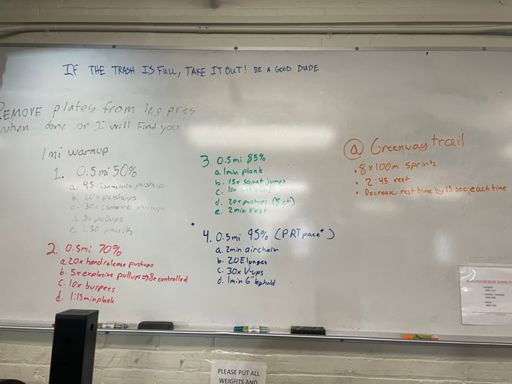 IF THE TRASH IS FULL, TAKE IT OUT! BE A GOOD DUDE
REMOVE plates from leg pres
when done or I will find you
1 mi warmup
1. 0.5mi 50%
a. 45
b. 20x pushups
c. 30
d. 5x pullups
e. 1:30 plank
2. 0.5mi 70%
a. 20x hand release pushups
b. 5x explosive pullups => 8x controlled
c. 10x burpees
d. 1:15min plank
3. 0.5mi 85%
a. 1min plank
b. 15x squat jumps
c. 10x
d. 20x pushups
e. 2min rest
4. 0.5mi 95% (PRT pace*)
a. 2min airchair
b. 20 lunges
c. 30x V-ups
d. 1min 6" leghold
@ Greenway trail
• 8x100m sprints
• 2:45 rest
• Decrease rest time by 15 sec each time
PLEASE PUT ALL
WEIGHTS AND